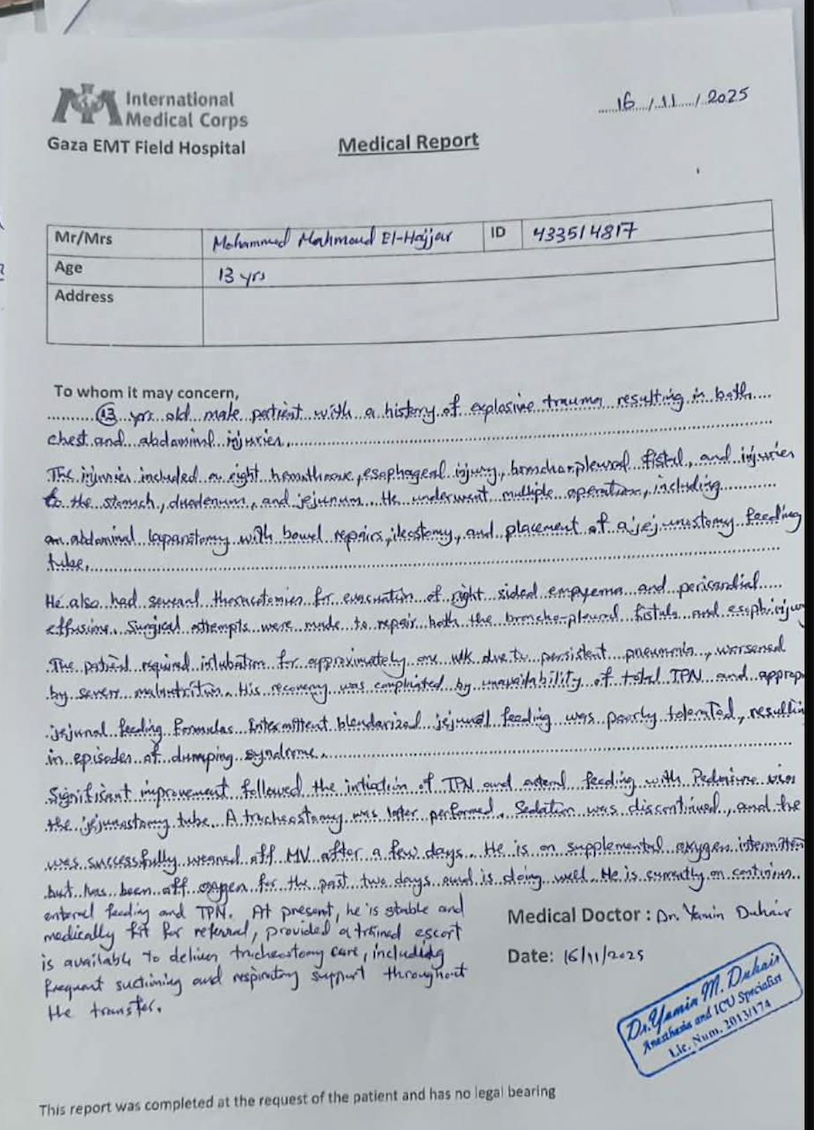 International
Medical Corps
Gaza EMT Field Hospital
16/11/2025
Medical Report
Mr/Mrs Mohammed Mahmoud El-Hajjar ID 433514817
Age 13 yrs
Address
To whom it may concern,
13 yrs old male patient with a history of explosive trauma resulting in both
chest and abdominal injuries.
The injuries included a right hemothorax, esophageal injury, bronchopleural fistal, and injuries
to the stomch, duodenum, and jejunum. He underwent multiple operation, including
an abdominal laparotomy with bowel repairs, ileostomy, and placement of a jejunostomy feeding
tube.
He also had several thoracotomies for evacuation of right sided empyema and pericardial
effusion. Surgical attempts were made to repair both the broncho-pleural fistula and
The patient required intubation for approximately one wk due to persistent pneumonia, worsened
by severe malnutrition. His recovery was complicated by unavailability of total TPN and
jejunal feeding formulas. Intermittent blendarized jejunal feeding was poorly tolerated,
in episodes of dumping syndrome.
Significant improvement followed the intiation of TPN and feeding with Pediasure
the jejunostomy tube. A tracheostomy was later performed. Sedation was discontinued, and he
was successfully weaned off MV after a few days. He is on supplemental oxygen
but has been off oxygen for the past two days and is doing well. He is currently on
enteral feeding and TPN. At present, he is stable and
medically fit for referral, provided a trained escort
is available to deliver tracheostomy care, including
frequent suctioning and respiratory support throughout
the transfer.
Medical Doctor : Dr. Yamin Duhair
Date: 16/11/2025
Dr. Yamin M. Duhair
Anesthesia and ICU Specialist
Lic. Num. 2013/174
This report was completed at the request of the patient and has no legal bearing